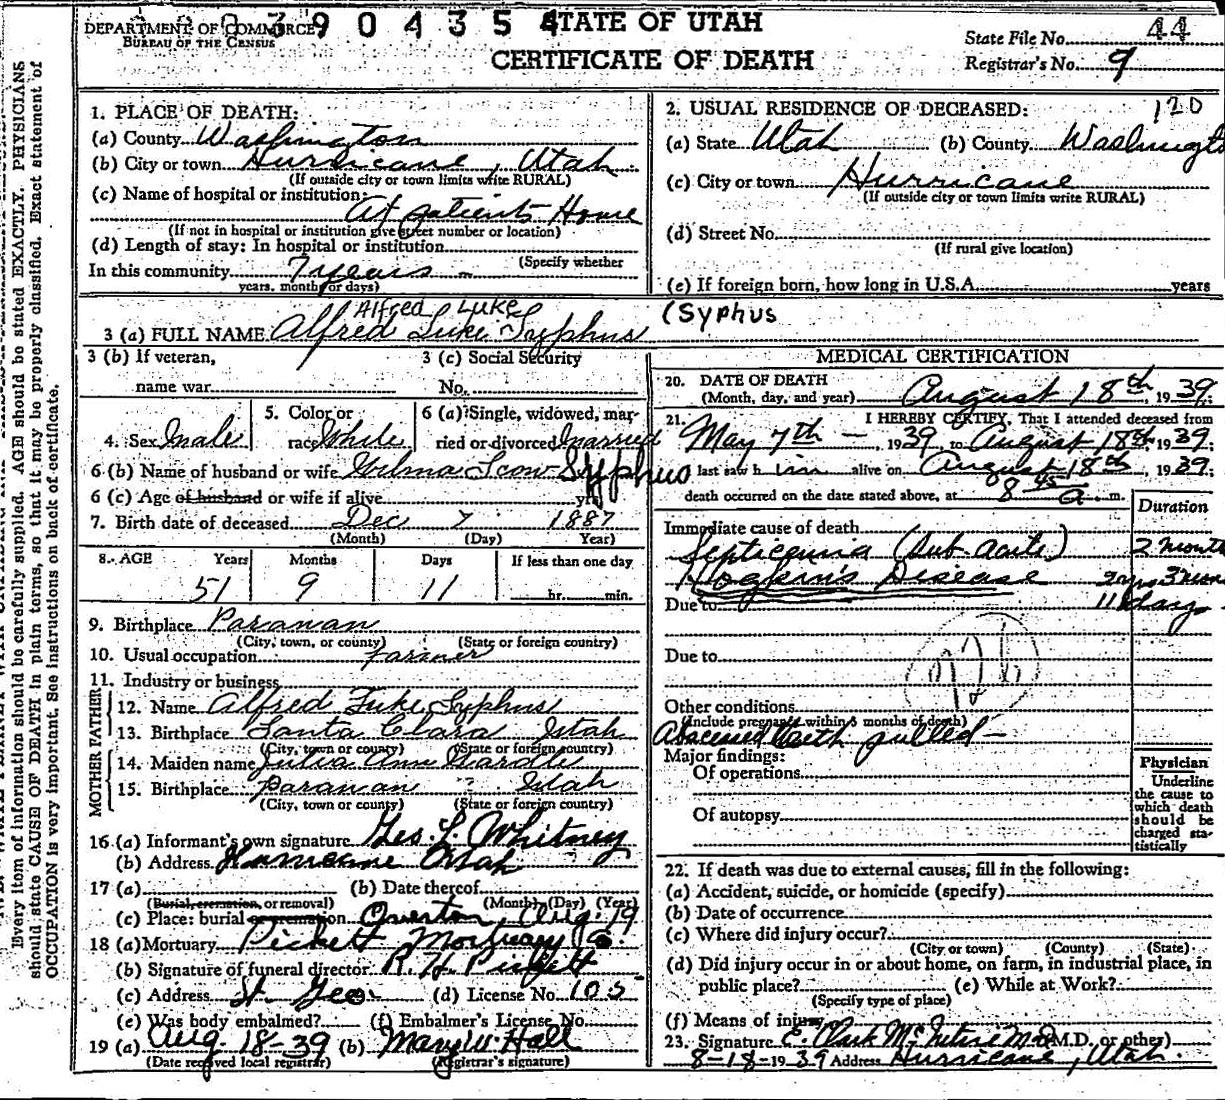 DEPARTMENT OF COMMERCE
BUREAU OF THE CENSUS
3 9 0 4 3 5 4
STATE OF UTAH
CERTIFICATE OF DEATH
State File No. 44
Registrar's No. 9
1. PLACE OF DEATH:
(a) County Washington
(b) City or town Hurricane, Utah.
(If outside city or town limits write RURAL)
(c) Name of hospital or institution:
At patients Home
(If not in hospital or institution give street number or location)
(d) Length of stay: In hospital or institution
(Specify whether
In this community 7 years
years, months or days)
2. USUAL RESIDENCE OF DECEASED: 120
(a) State Utah (b) County Washingt
(c) City or town Hurricane
(If outside city or town limits write RURAL)
(d) Street No.
(If rural give location)
(e) If foreign born, how long in U.S.A. years
Alfred Luke (Syphus
3 (a) FULL NAME Alfred Luke Syphus
3 (b) If veteran, 3 (c) Social Security
name war No.
4. Sex Male
5. Color or
race White
6 (a) Single, widowed, mar-
ried or divorced Married
6 (b) Name of husband or wife Wilma Scow Syphus
6 (c) Age of husband or wife if alive yrs.
7. Birth date of deceased Dec 7 1887
(Month) (Day) Year)
8. AGE Years Months Days If less than one day
51 9 11 hr. min.
9. Birthplace Parowan
(City, town, or county) (State or foreign country)
10. Usual occupation Farmer
11. Industry or business
FATHER
12. Name Alfred Luke Syphus
13. Birthplace Santa Clara Utah
(City, town or county) (State or foreign country)
MOTHER
14. Maiden name Julia Ann Wardle
15. Birthplace Parowan Utah
(City, town or county) (State or foreign country)
16 (a) Informant's own signature Geo. L. Whitney
(b) Address Hurricane Utah
17 (a) (b) Date thereof
(Burial, cremation, or removal) (Month) (Day) (Year)
(c) Place: burial or cremation Overton, Aug. 19
18 (a) Mortuary Pickett Mortuary Co.
(b) Signature of funeral director R. H. Pickett
(c) Address St. Geo. (d) License No. 105
(e) Was body embalmed? (f) Embalmer's License No.
19 (a) Aug. 18-39 (b) Mary W. Hall
(Date received local registrar) (Registrar's signature)
MEDICAL CERTIFICATION
20. DATE OF DEATH
(Month, day, and year) August 18th, 1939;
21. I HEREBY CERTIFY, That I attended deceased from
May 7th 1939 to August 18th 1939;
I last saw him alive on August 18th 1939;
death occurred on the date stated above, at 8 45 a. m.
Duration
Immediate cause of death
Septicemia (Sub Acute) 2 month
Hogkin's Disease 3 mon
Due to 11 day
Due to
Other conditions
(Include pregnancy within 3 months of death)
Abscessed teeth pulled
Major findings:
Of operations
Of autopsy
Physician
Underline
the cause to
which death
should be
charged sta-
tistically
22. If death was due to external causes, fill in the following:
(a) Accident, suicide, or homicide (specify)
(b) Date of occurrence
(c) Where did injury occur?
(City or town) (County) (State)
(d) Did injury occur in or about home, on farm, in industrial place, in
public place? (e) While at Work?
(Specify type of place)
(f) Means of injury
23. Signature E. Clark McIntire M.D. (M.D. or other)
8-18-1939 Address Hurricane, Utah.
Every item of information should be carefully supplied. AGE should be stated EXACTLY. PHYSICIANS
should state CAUSE OF DEATH in plain terms, so that it may be properly classified. Exact statement of
OCCUPATION is very important. See instructions on back of certificate.